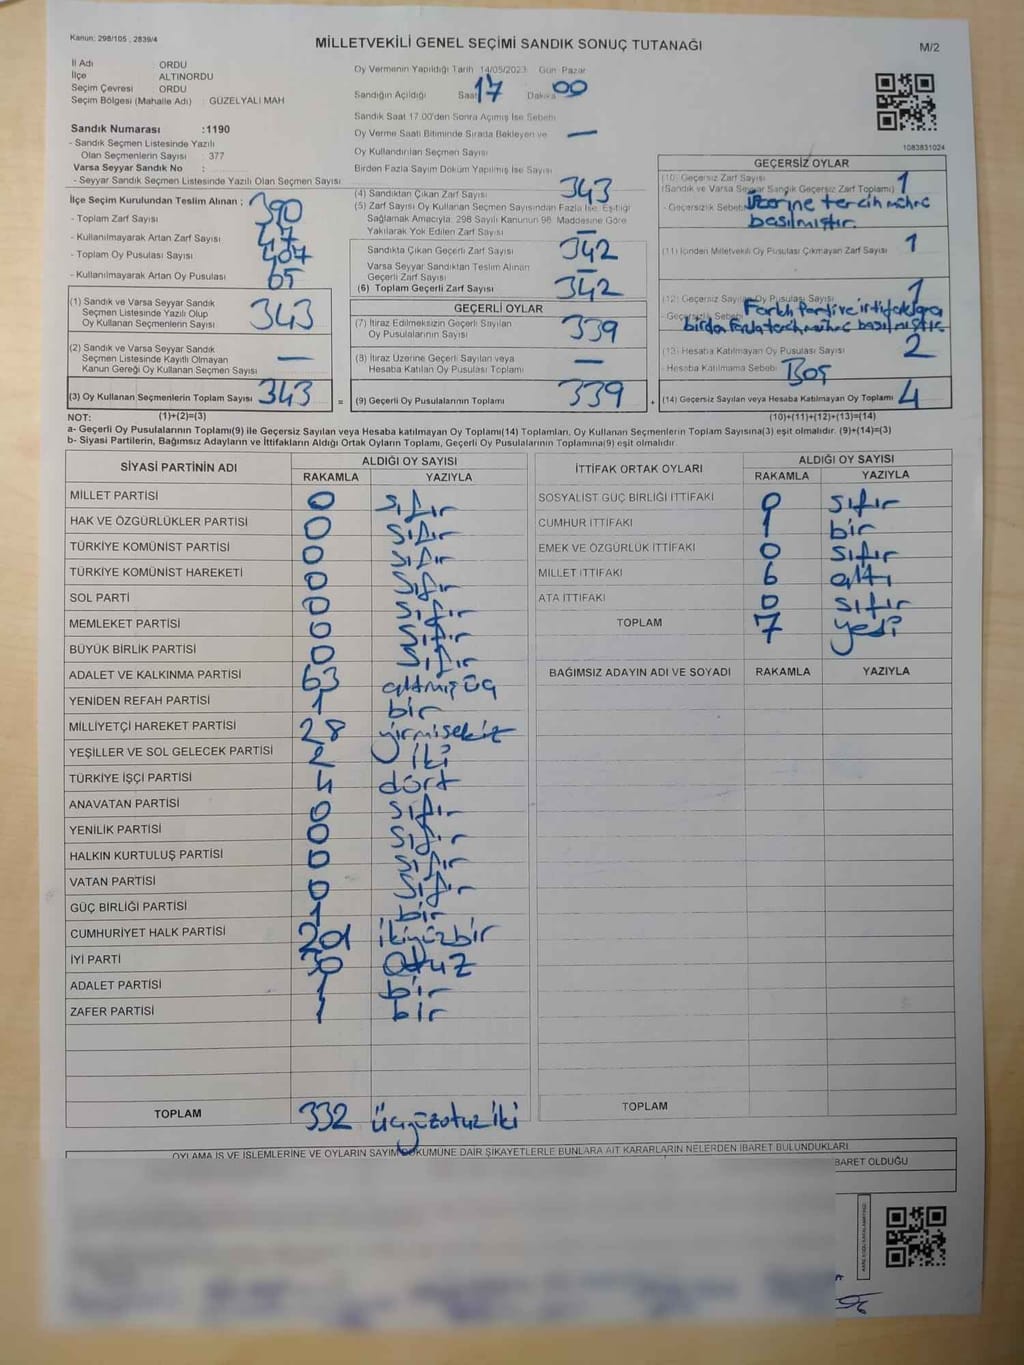 Kanun: 298/105 ; 2839/4
MİLLETVEKİLİ GENEL SEÇİMİ SANDIK SONUÇ TUTANAĞI
M/2
İl Adı ORDU
İlçe ALTINORDU
Seçim Çevresi ORDU
Seçim Bölgesi (Mahalle Adı) : GÜZELYALI MAH
Sandık Numarası :1190
- Sandık Seçmen Listesinde Yazılı
Olan Seçmenlerin Sayısı : 377
Varsa Seyyar Sandık No :
- Seyyar Sandık Seçmen Listesinde Yazılı Olan Seçmen Sayısı
Oy Vermenin Yapıldığı Tarih 14/05/2023 Gün Pazar
Sandığın Açıldığı Saat 17 Dakika 00
Sandık Saat 17.00'den Sonra Açımış İse Sebebi
Oy Verme Saati Bitiminde Sırada Bekleyen ve —
Oy Kullandırılan Seçmen Sayısı
Birden Fazla Sayım Döküm Yapılmış İse Sayısı
1083831024
İlçe Seçim Kurulundan Teslim Alınan :
- Toplam Zarf Sayısı 390
- Kullanılmayarak Artan Zarf Sayısı 47
- Toplam Oy Pusulası Sayısı 407
- Kullanılmayarak Artan Oy Pusulası 65
(1) Sandık ve Varsa Seyyar Sandık
Seçmen Listesinde Yazılı Olup
Oy Kullanan Seçmenlerin Sayısı 343
(2) Sandık ve Varsa Seyyar Sandık
Seçmen Listesinde Kayıtlı Olmayan
Kanun Gereği Oy Kullanan Seçmen Sayısı —
(3) Oy Kullanan Seçmenlerin Toplam Sayısı 343
(4) Sandıktan Çıkan Zarf Sayısı 343
(5) Zarf Sayısı Oy Kullanan Seçmen Sayısından Fazla İse, Eşitliği
Sağlamak Amacıyla, 298 Sayılı Kanunun 98. Maddesine Göre
Yakılarak Yok Edilen Zarf Sayısı —
Sandıkta Çıkan Geçerli Zarf Sayısı 342
Varsa Seyyar Sandıktan Teslim Alınan
Geçerli Zarf Sayısı —
(6) Toplam Geçerli Zarf Sayısı 342
GEÇERLİ OYLAR
(7) İtiraz Edilmeksizin Geçerli Sayılan
Oy Pusulalarının Sayısı 339
(8) İtiraz Üzerine Geçerli Sayılan veya
Hesaba Katılan Oy Pusulası Toplamı —
= (9) Geçerli Oy Pusulalarının Toplamı 339
GEÇERSİZ OYLAR
(10) Geçersiz Zarf Sayısı
(Sandık ve Varsa Seyyar Sandık Geçersiz Zarf Toplamı) 1
- Geçersizlik Sebebi Üzerine tercih mührü
basılmıştır.
(11) İçinden Milletvekili Oy Pusulası Çıkmayan Zarf Sayısı 1
(12) Geçersiz Sayılan Oy Pusulası Sayısı 1
- Geçersizlik Sebebi Farklı Parti ve ittifaklara
birden fazla tercih mührü basılmıştır
(13) Hesaba Katılmayan Oy Pusulası Sayısı 2
- Hesaba Katılmama Sebebi Boş
+ (14) Geçersiz Sayılan veya Hesaba Katılmayan Oy Toplamı 4
NOT: (1)+(2)=(3)
(10)+(11)+(12)+(13)=(14)
a- Geçerli Oy Pusulalarının Toplamı(9) ile Geçersiz Sayılan veya Hesaba katılmayan Oy Toplamı(14) Toplamları, Oy Kullanan Seçmenlerin Toplam Sayısına(3) eşit olmalıdır. (9)+(14)=(3)
b- Siyasi Partilerin, Bağımsız Adayların ve İttifakların Aldığı Ortak Oyların Toplamı, Geçerli Oy Pusulalarının Toplamına(9) eşit olmalıdır.
SİYASİ PARTİNİN ADI ALDIĞI OY SAYISI
RAKAMLA YAZIYLA
MİLLET PARTİSİ 0 sıfır
HAK VE ÖZGÜRLÜKLER PARTİSİ 0 sıfır
TÜRKİYE KOMÜNİST PARTİSİ 0 sıfır
TÜRKİYE KOMÜNİST HAREKETİ 0 sıfır
SOL PARTİ 0 sıfır
MEMLEKET PARTİSİ 0 sıfır
BÜYÜK BİRLİK PARTİSİ 0 sıfır
ADALET VE KALKINMA PARTİSİ 63 altmışüç
YENİDEN REFAH PARTİSİ 1 bir
MİLLİYETÇİ HAREKET PARTİSİ 28 yirmisekiz
YEŞİLLER VE SOL GELECEK PARTİSİ 2 iki
TÜRKİYE İŞÇİ PARTİSİ 4 dört
ANAVATAN PARTİSİ 0 sıfır
YENİLİK PARTİSİ 0 sıfır
HALKIN KURTULUŞ PARTİSİ 0 sıfır
VATAN PARTİSİ 0 sıfır
GÜÇ BİRLİĞİ PARTİSİ 1 bir
CUMHURİYET HALK PARTİSİ 201 ikiyüzbir
İYİ PARTİ 30 otuz
ADALET PARTİSİ 1 bir
ZAFER PARTİSİ 1 bir
TOPLAM 332 üçyüzotuziki
İTTİFAK ORTAK OYLARI ALDIĞI OY SAYISI
RAKAMLA YAZIYLA
SOSYALİST GÜÇ BİRLİĞİ İTTİFAKI 0 sıfır
CUMHUR İTTİFAKI 1 bir
EMEK VE ÖZGÜRLÜK İTTİFAKI 0 sıfır
MİLLET İTTİFAKI 6 altı
ATA İTTİFAKI 0 sıfır
TOPLAM 7 yedi
BAĞIMSIZ ADAYIN ADI VE SOYADI RAKAMLA YAZIYLA
TOPLAM
OYLAMA İŞ VE İŞLEMLERİNE VE OYLARIN SAYIM DÖKÜMÜNE DAİR ŞİKAYETLERLE BUNLARA AİT KARARLARIN NELERDEN İBARET BULUNDUKLARI
BARET OLDUĞU